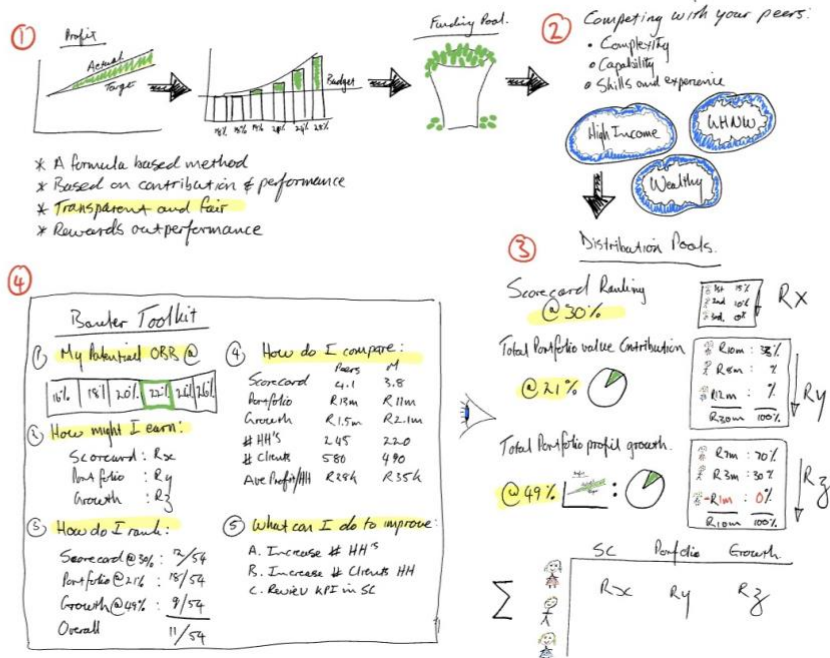 1
Profit
Actual
Target
Budget
18% 18% 19% 20% 24% 28%
Funding Pool.
* A formula based method
* Based on contribution & performance
* Transparent and fair
* Rewards outperformance
2
Competing with your peers:
• Complexity
• Capability
• Skills and experience
High Income
UHNW
Wealthy
3
Distribution Pools.
Scorecard Ranking
@ 30%
1st 15%
2nd 10%
3rd
Rx
Total Portfolio value Contribution
@ 21%
R10m : 33%
R8m : %
R12m : %
R30m 100%
Ry
Total Portfolio profit growth.
@ 49%
R7m : 70%
R3m : 30%
-R1m : 0%
R10m 100%
Rz
SC Portfolio Growth
Σ
Rx Ry Rz
4
Banker Toolkit
1 My Potential OBB @
16% 18% 20% 22% 24% 26%
2 How might I earn:
Scorecard : Rx
Portfolio : Ry
Growth : Rz
3 How do I rank:
Scorecard @ 30% : 12/54
Portfolio @ 21% : 18/54
Growth @ 49% : 9/54
Overall 11/54
4 How do I compare:
Peers M
Scorecard 4.1 3.8
Portfolio R13m R11m
Growth R1.5m R2.1m
# HH's 245 220
# Clients 580 490
Ave Profit/HH R28k R35k
5 What can I do to improve:
A. Increase # HH's
B. Increase # Clients HH
C. Review KPI in SC